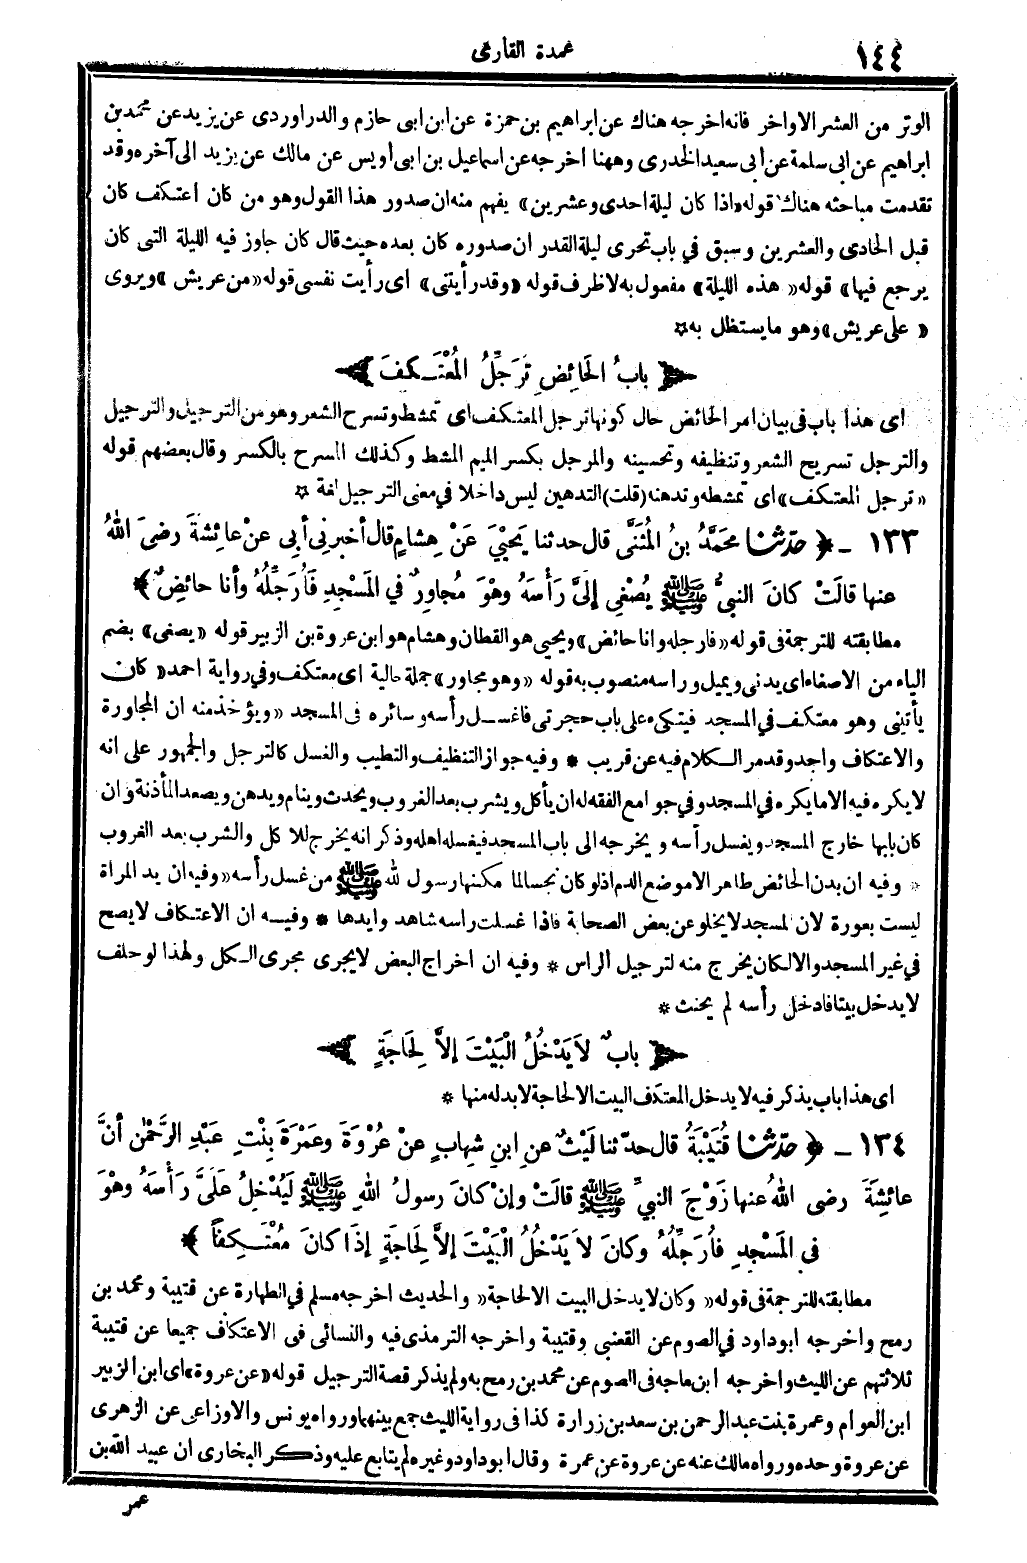 ١٤٤
عمدة القارئ
الوتر من العشر الاواخر فانه اخرجه هناك عن ابراهيم بن حمزة عن ابن ابى حازم والدراوردى عن يزيد عن محمد بن
ابراهيم عن ابى سلمة عن أبى سعيد الخدرى وههنا اخرجه عن اسماعيل بن ابى أويس عن مالك عن يزيد الى آخره وقد
تقدمت مباحثه هناك قوله «اذا كان ليلة احدى وعشرين» يفهم منه ان صدور هذا القول وهو من كان اعتكف كان
قبل الحادى والعشرين وسبق في باب تحرى ليلة القدر ان صدوره كان بعده حيث قال كان جاوز فيه الليلة التى كان
يرجع فيها» قوله «هذه الليلة» مفعول به لا ظرف قوله «وقد رأيتنى» اى رأيت نفسى قوله «من عريش» ويروى
«على عريش» وهو ما يستظل به ☆
﴿ بابُ الحَائِضِ تُرَجِّلُ المُعْتَكِفَ ﴾
اى هذا باب فى بيان امر الحائض حال كونها ترجل المعتكف اى تمشط وتسرح الشعر وهو من الترجيل والترجيل
والترجل تسريح الشعر وتنظيفه وتحسينه والمرجل بكسر الميم المشط وكذلك المسرح بالكسر وقال بعضهم قوله
«ترجل المعتكف» اى تمشطه وتدهنه (قلت) التدهين ليس داخلا في معنى الترجيل لغة ☆
١٣٣ ـ ﴿ حدّثنا محَمَّدُ بنُ المُثَنَّى قال حدثنا يَحْيىَ عَنْ هِشامٍ قال أخبرنِى أبِى عنْ عائِشةَ رضىَ اللهُ
عنها قالَتْ كانَ النبىُّ ﷺ يُصْغِى إلىَّ رَأْسَهُ وهْوَ مُجاوِرٌ فِي المَسْجِدِ فَأُرَجِّلُهُ وأنا حائِضٌ ﴾
مطابقته للترجمة فى قوله «فارجله وانا حائض» ويحيى هو القطان وهشام هو ابن عروة بن الزبير قوله «يصغى» بضم
الياء من الاصغاء اى يدنى ويميل وراسه منصوب به قوله «وهو مجاور» جملة حالية اى معتكف وفي رواية احمد «كان
يأتينى وهو معتكف في المسجد فيتكىء على باب حجرتى فاغسل رأسه وسائره فى المسجد «ويؤخذ منه ان المجاورة
والاعتكاف واحد وقد مر الكلام فيه عن قريب * وفيه جواز التنظيف والتطيب والغسل كالترجل والجمهور على انه
لا يكره فيه الا ما يكره في المسجد وفي جوامع الفقه له ان يأكل ويشرب بعد الغروب ويحدث وينام ويدهن ويصعد المأذنة وان
كان بابها خارج المسجد ويغسل رأسه ويخرجه الى باب المسجد فيغسله اهله وذكر انه يخرج للاكل والشرب بعد الغروب
* وفيه ان بدن الحائض طاهر الا موضع الدم اذ لو كان نجسا لما مكنها رسول لله ﷺ من غسل رأسه «وفيه ان يد المراة
ليست بعورة لان المسجد لا يخلو عن بعض الصحابة فاذا غسلت راسه شاهد وا يدها * وفيه ان الاعتكاف لا يصح
في غير المسجد والا لكان يخرج منه لترجيل الراس * وفيه ان اخراج البعض لا يجرى مجرى الكل ولهذا لو حلف
لا يدخل بيتا فادخل رأسه لم يحنث *
﴿ بابٌ لاَ يَدْخُلُ الْبَيْتَ إلاَّ لِحَاجَةٍ ﴾
اى هذا باب يذكر فيه لا يدخل المعتكف البيت الا لحاجة لا بد له منها *
١٣٤ ـ ﴿ حدّثنا قُتَيْبَةُ قال حدّثنا لَيْثٌ عنِ ابنِ شِهابٍ عنْ عُرْوَةَ وعَمْرَةَ بِنْتِ عَبْدِ الرَّحْمٰنِ أنَّ
عائِشَةَ رضى اللهُ عنها زَوْجَ النبىِّ ﷺ قالَتْ وإنْ كانَ رسولُ اللهِ ﷺ لَيُدْخِلُ عَلَىَّ رَأْسَهُ وهْوَ
فى المَسْجِدِ فأُرَجِّلُهُ وكانَ لاَ يَدْخُلُ الْبَيْتَ إلاَّ لِحَاجَةٍ إذَا كانَ مُعْتَكِفاً ﴾
مطابقته للترجمة فى قوله «وكان لا يدخل البيت الا لحاجة» والحديث اخرجه مسلم في الطهارة عن قتيبة ومحمد بن
رمح واخرجه ابو داود في الصوم عن القعنبى وقتيبة واخرجه الترمذى فيه والنسائى فى الاعتكاف جميعا عن قتيبة
ثلاثتهم عن الليث واخرجه ابن ماجه فى الصوم عن محمد بن رمح به ولم يذكر قصة الترجيل قوله «عن عروة» اى ابن الزبير
ابن العوام وعمرة بنت عبد الرحمن بن سعد بن زرارة كذا فى رواية الليث جمع بينهما ورواه يونس والاوزاعى عن الزهرى
عن عروة وحده ورواه مالك عنه عن عروة عن عمرة وقال ابو داود وغيره لم يتابع عليه وذكر البخارى ان عبيد الله بن
عمر